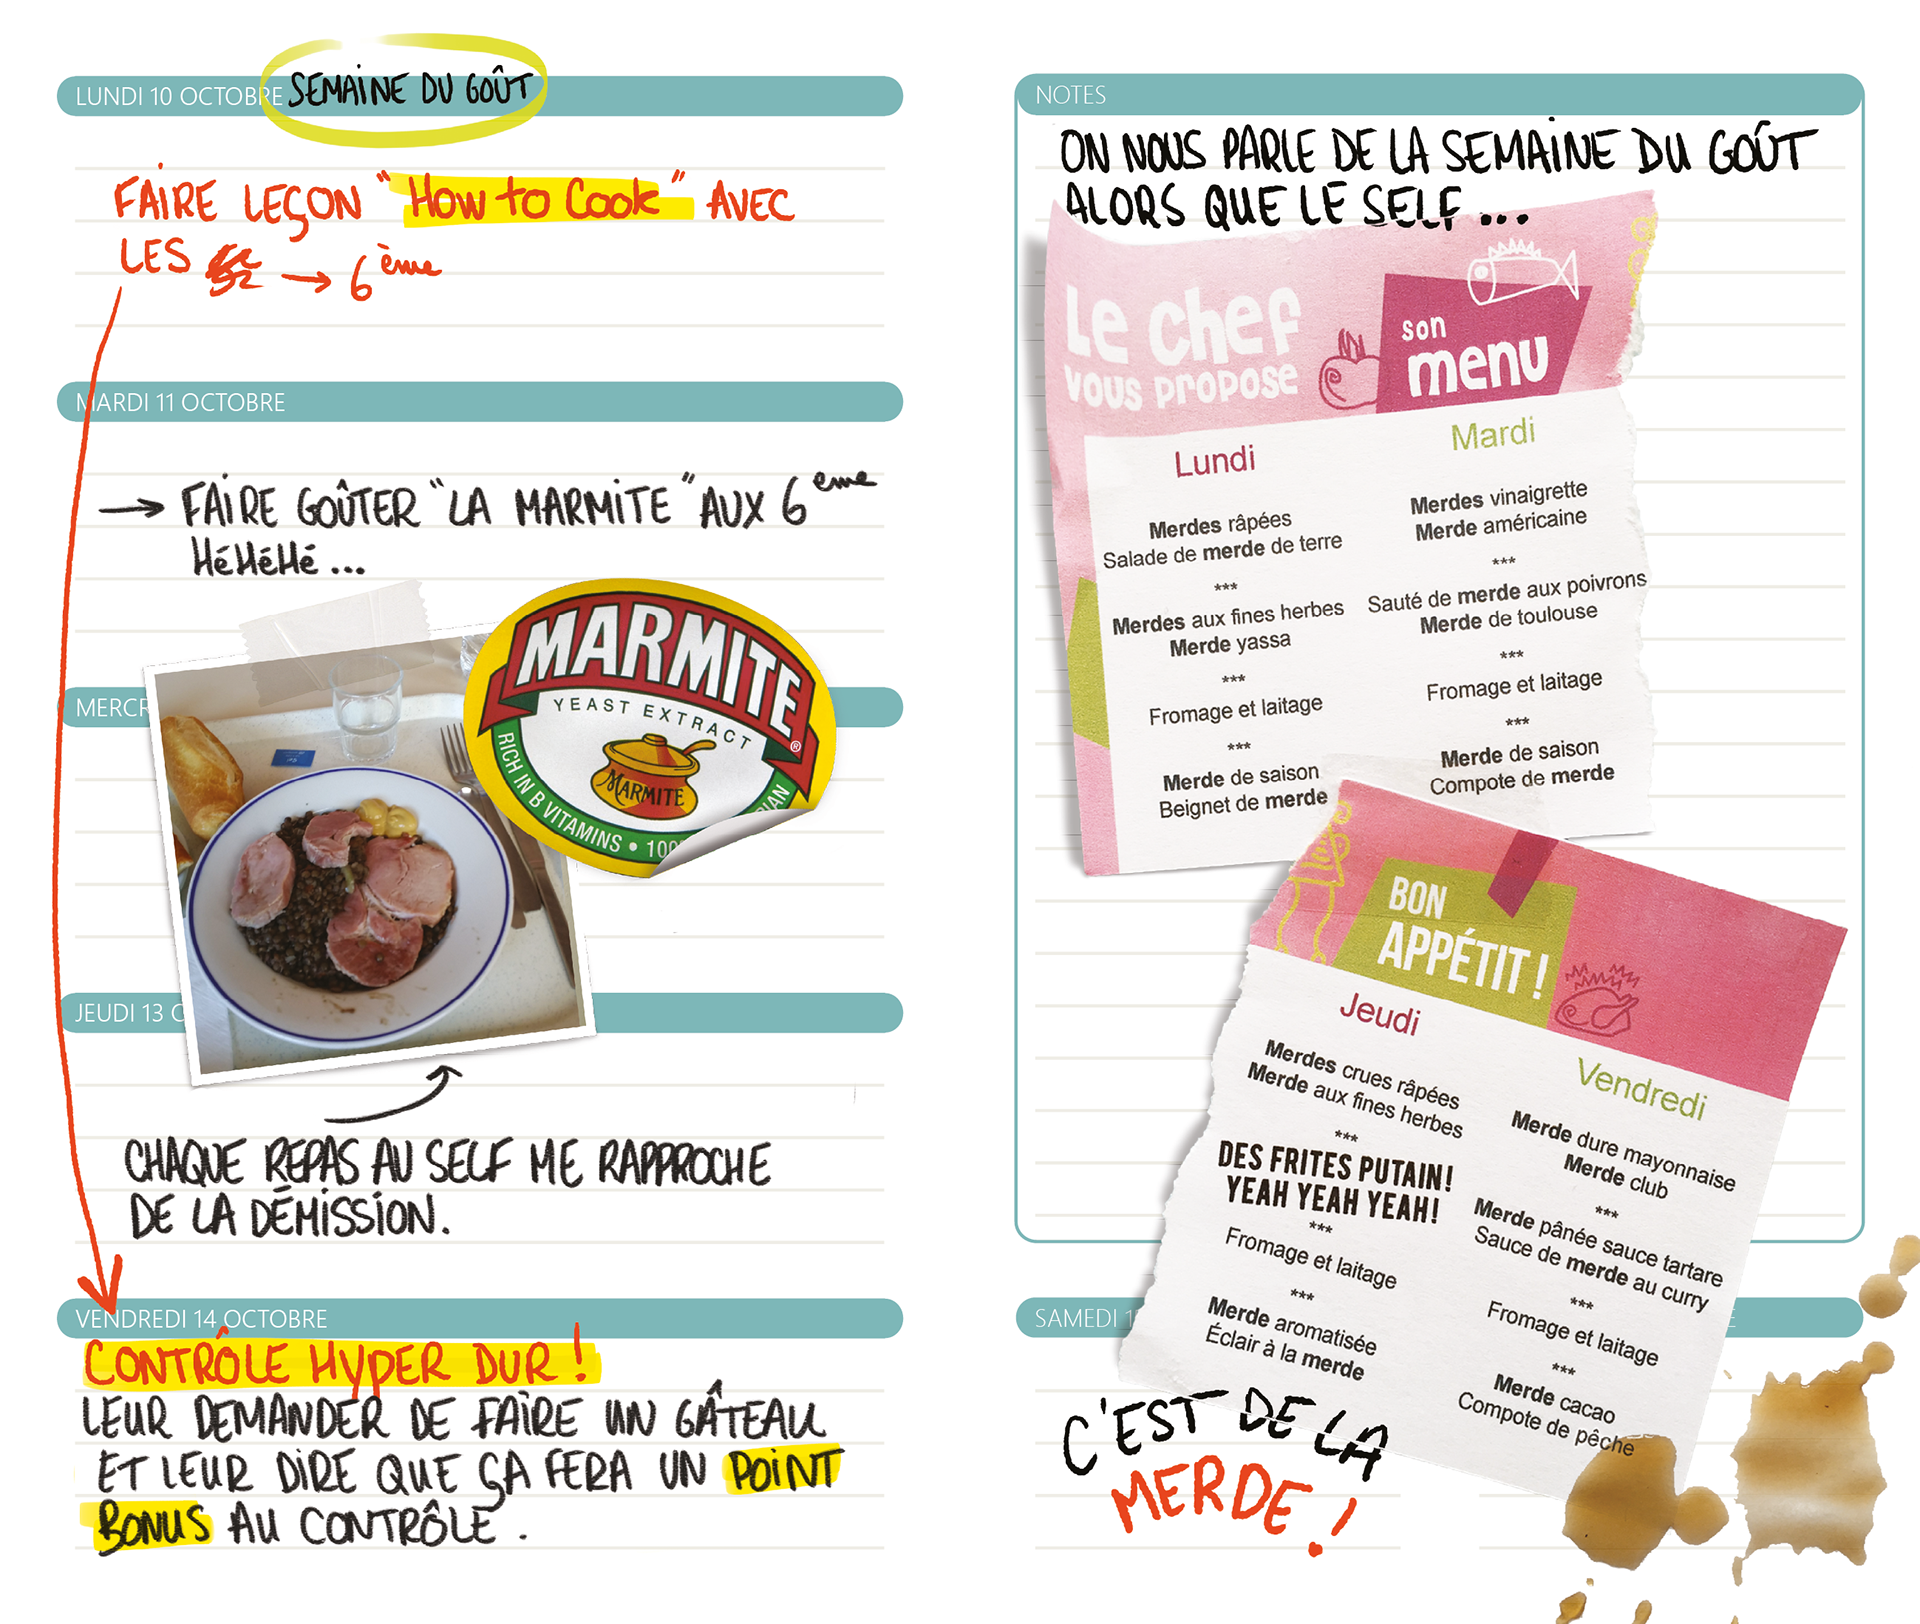 LUNDI 10 OCTOBRE SEMAINE DU GOÛT
FAIRE LEÇON "How to Cook" AVEC
LES → 6ème
MARDI 11 OCTOBRE
→ FAIRE GOÛTER "LA MARMITE" AUX 6ème
HÉHÉHÉ...
MARMITE
YEAST EXTRACT
RICH IN B VITAMINS • 100
MARMITE
JEUDI 13
CHAQUE REPAS AU SELF ME RAPPROCHE
DE LA DÉMISSION.
VENDREDI 14 OCTOBRE
CONTRÔLE HYPER DUR !
LEUR DEMANDER DE FAIRE UN GÂTEAU
ET LEUR DIRE QUE ÇA FERA UN POINT
BONUS AU CONTRÔLE.
NOTES
ON NOUS PARLE DE LA SEMAINE DU GOÛT
ALORS QUE LE SELF...
Le chef
vous propose
son
menu
Lundi
Merdes râpées
Salade de merde de terre
***
Merdes aux fines herbes
Merde yassa
***
Fromage et laitage
***
Merde de saison
Beignet de merde
Mardi
Merdes vinaigrette
Merde américaine
***
Sauté de merde aux poivrons
Merde de toulouse
***
Fromage et laitage
***
Merde de saison
Compote de merde
BON
APPÉTIT !
Jeudi
Merdes crues râpées
Merde aux fines herbes
***
DES FRITES PUTAIN!
YEAH YEAH YEAH!
***
Fromage et laitage
***
Merde aromatisée
Éclair à la merde
Vendredi
Merde dure mayonnaise
Merde club
***
Merde pânée sauce tartare
Sauce de merde au curry
***
Fromage et laitage
***
Merde cacao
Compote de pêche
SAMEDI
C'EST DE LA
MERDE !